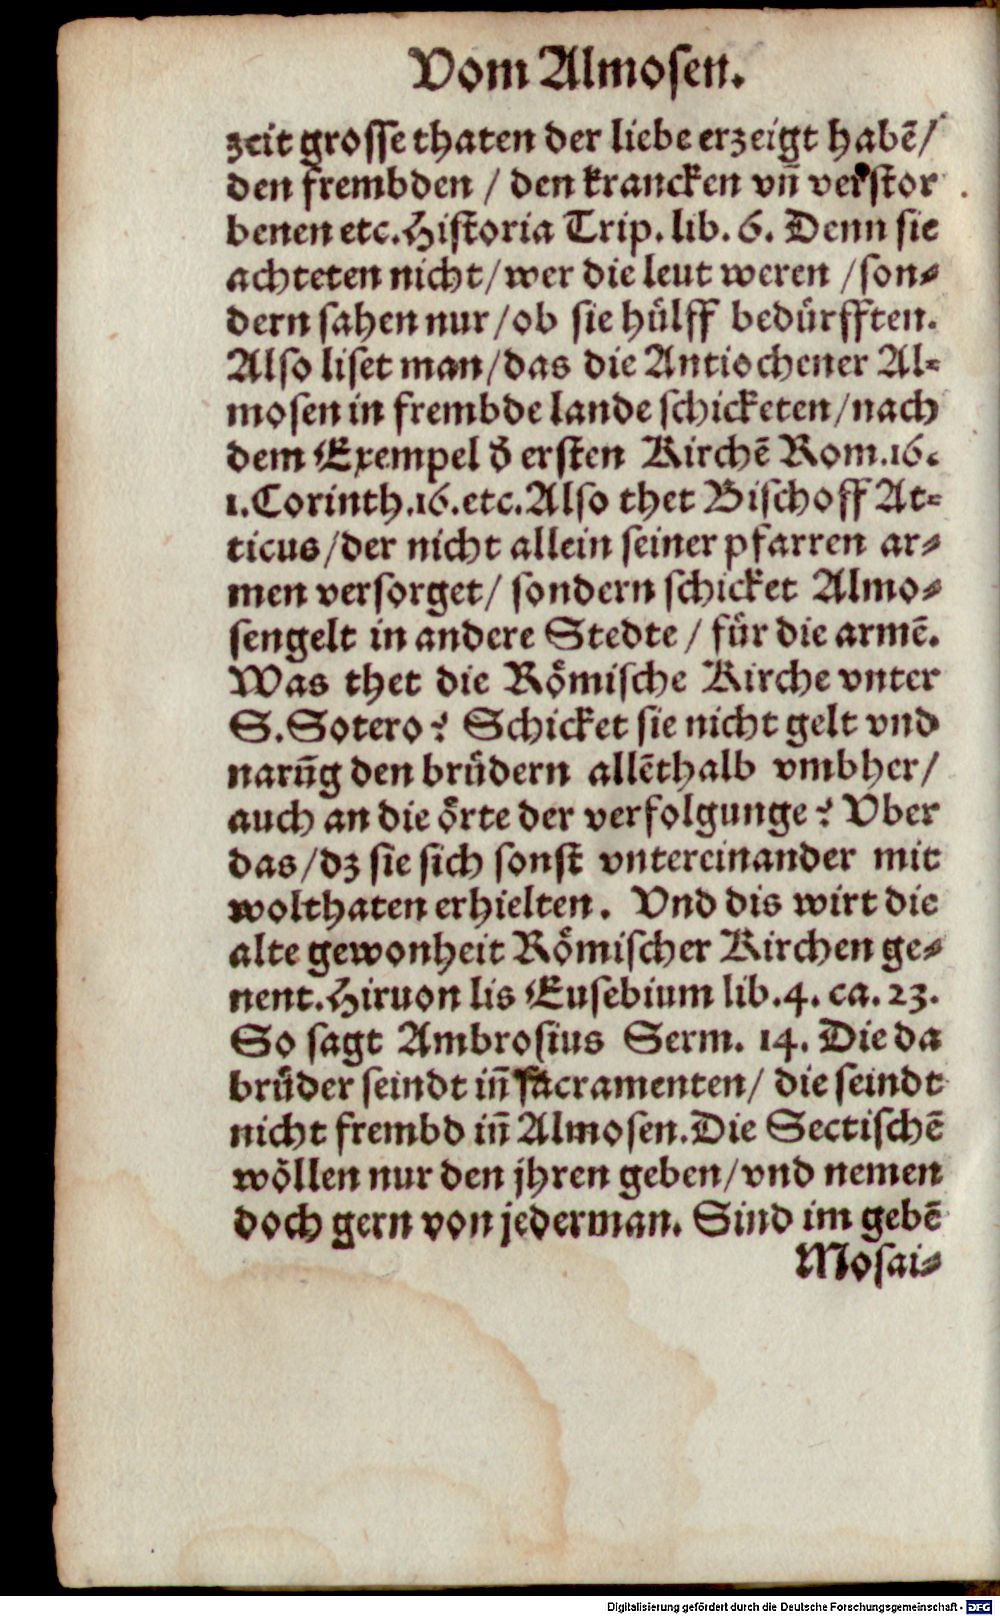 Vom Almosen.
zeit grosse thaten der liebe erzeigt habē/
den frembden / den krancken vn̄ verstor
benen etc. Historia Trip. lib. 6. Denn sie
achteten nicht/ wer die leut weren / son⸗
dern sahen nur / ob sie hülff bedürfften.
Also liset man/ das die Antiochener Al⸗
mosen in frembde lande schicketen/ nach
dem Exempel d̄ ersten Kirchē Rom. 16.
1. Corinth. 16. etc. Also thet Bischoff At⸗
ticus/ der nicht allein seiner pfarren ar⸗
men versorget/ sondern schicket Almo⸗
sengelt in andere Stedte / für die armē.
Was thet die Römische Kirche vnter
S. Sotero? Schicket sie nicht gelt vnd
narūg den brüdern allēthalb vmbher/
auch an die örte der verfolgunge? Vber
das/ dz sie sich sonst vntereinander mit
wolthaten erhielten. Vnd dis wirt die
alte gewonheit Römischer Kirchen ge⸗
nent. Hiruon lis Eusebium lib. 4. ca. 23.
So sagt Ambrosius Serm. 14. Die da
brüder seindt in̄ sacramenten/ die seindt
nicht frembd in̄ Almosen. Die Sectischē
wöllen nur den jhren geben/ vnd nemen
doch gern von jederman. Sind im gebē
Mosai⸗
Digitalisierung gefördert durch die Deutsche Forschungsgemeinschaft - DFG